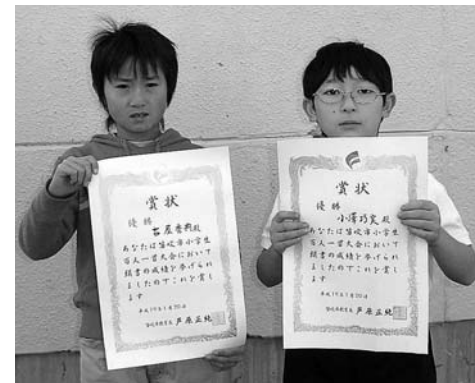 賞状
優勝
古屋香典殿
あなたは笛吹市小学生
百人一首大会において
頭書の成績を挙げられ
ましたのでこれを賞し
ます
平成19年1月20日
笛吹市教育長 芦原正純
賞状
優勝
小澤巧実殿
あなたは笛吹市小学生
百人一首大会において
頭書の成績を挙げられ
ましたのでこれを賞し
ます
平成19年1月20日
笛吹市教育長 芦原正純